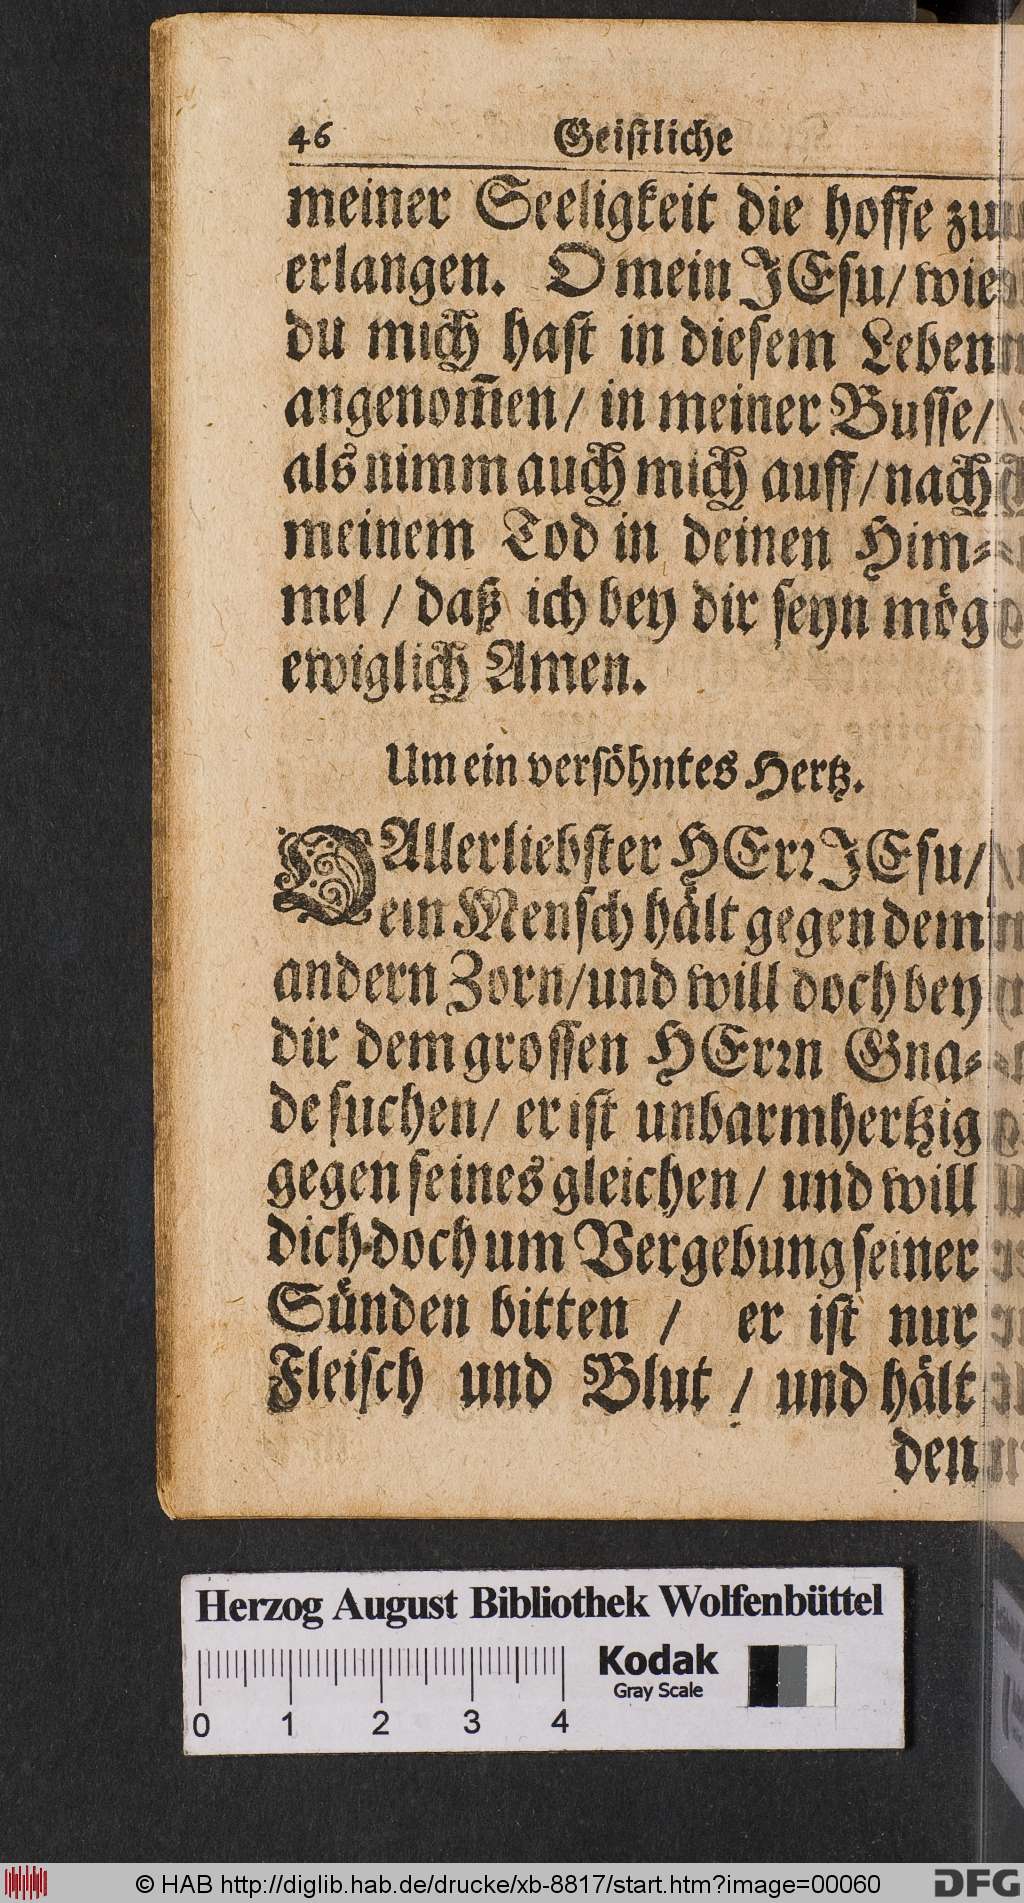 46 Geistliche
meiner Seeligkeit die hoffe zu
erlangen. O mein JEsu/ wie
du mich hast in diesem Leben
angenom̅en/ in meiner Busse/
als nimm auch mich auff/ nach
meinem Tod in deinen Him-
mel / daß ich bey dir seyn mög
ewiglich Amen.
Um ein versöhntes Hertz.
O Allerliebster HErꝛ JEsu/
ein Mensch hält gegen dem
andern Zorn/ und will doch bey
dir dem grossen HErꝛn Gna-
de suchen/ er ist unbarmhertzig
gegen seines gleichen/ und will
dich doch um Vergebung seiner
Sünden bitten / er ist nur
Fleisch und Blut / und hält
den
Herzog August Bibliothek Wolfenbüttel
Kodak
Gray Scale
0 1 2 3 4
© HAB http://diglib.hab.de/drucke/xb-8817/start.htm?image=00060
DFG